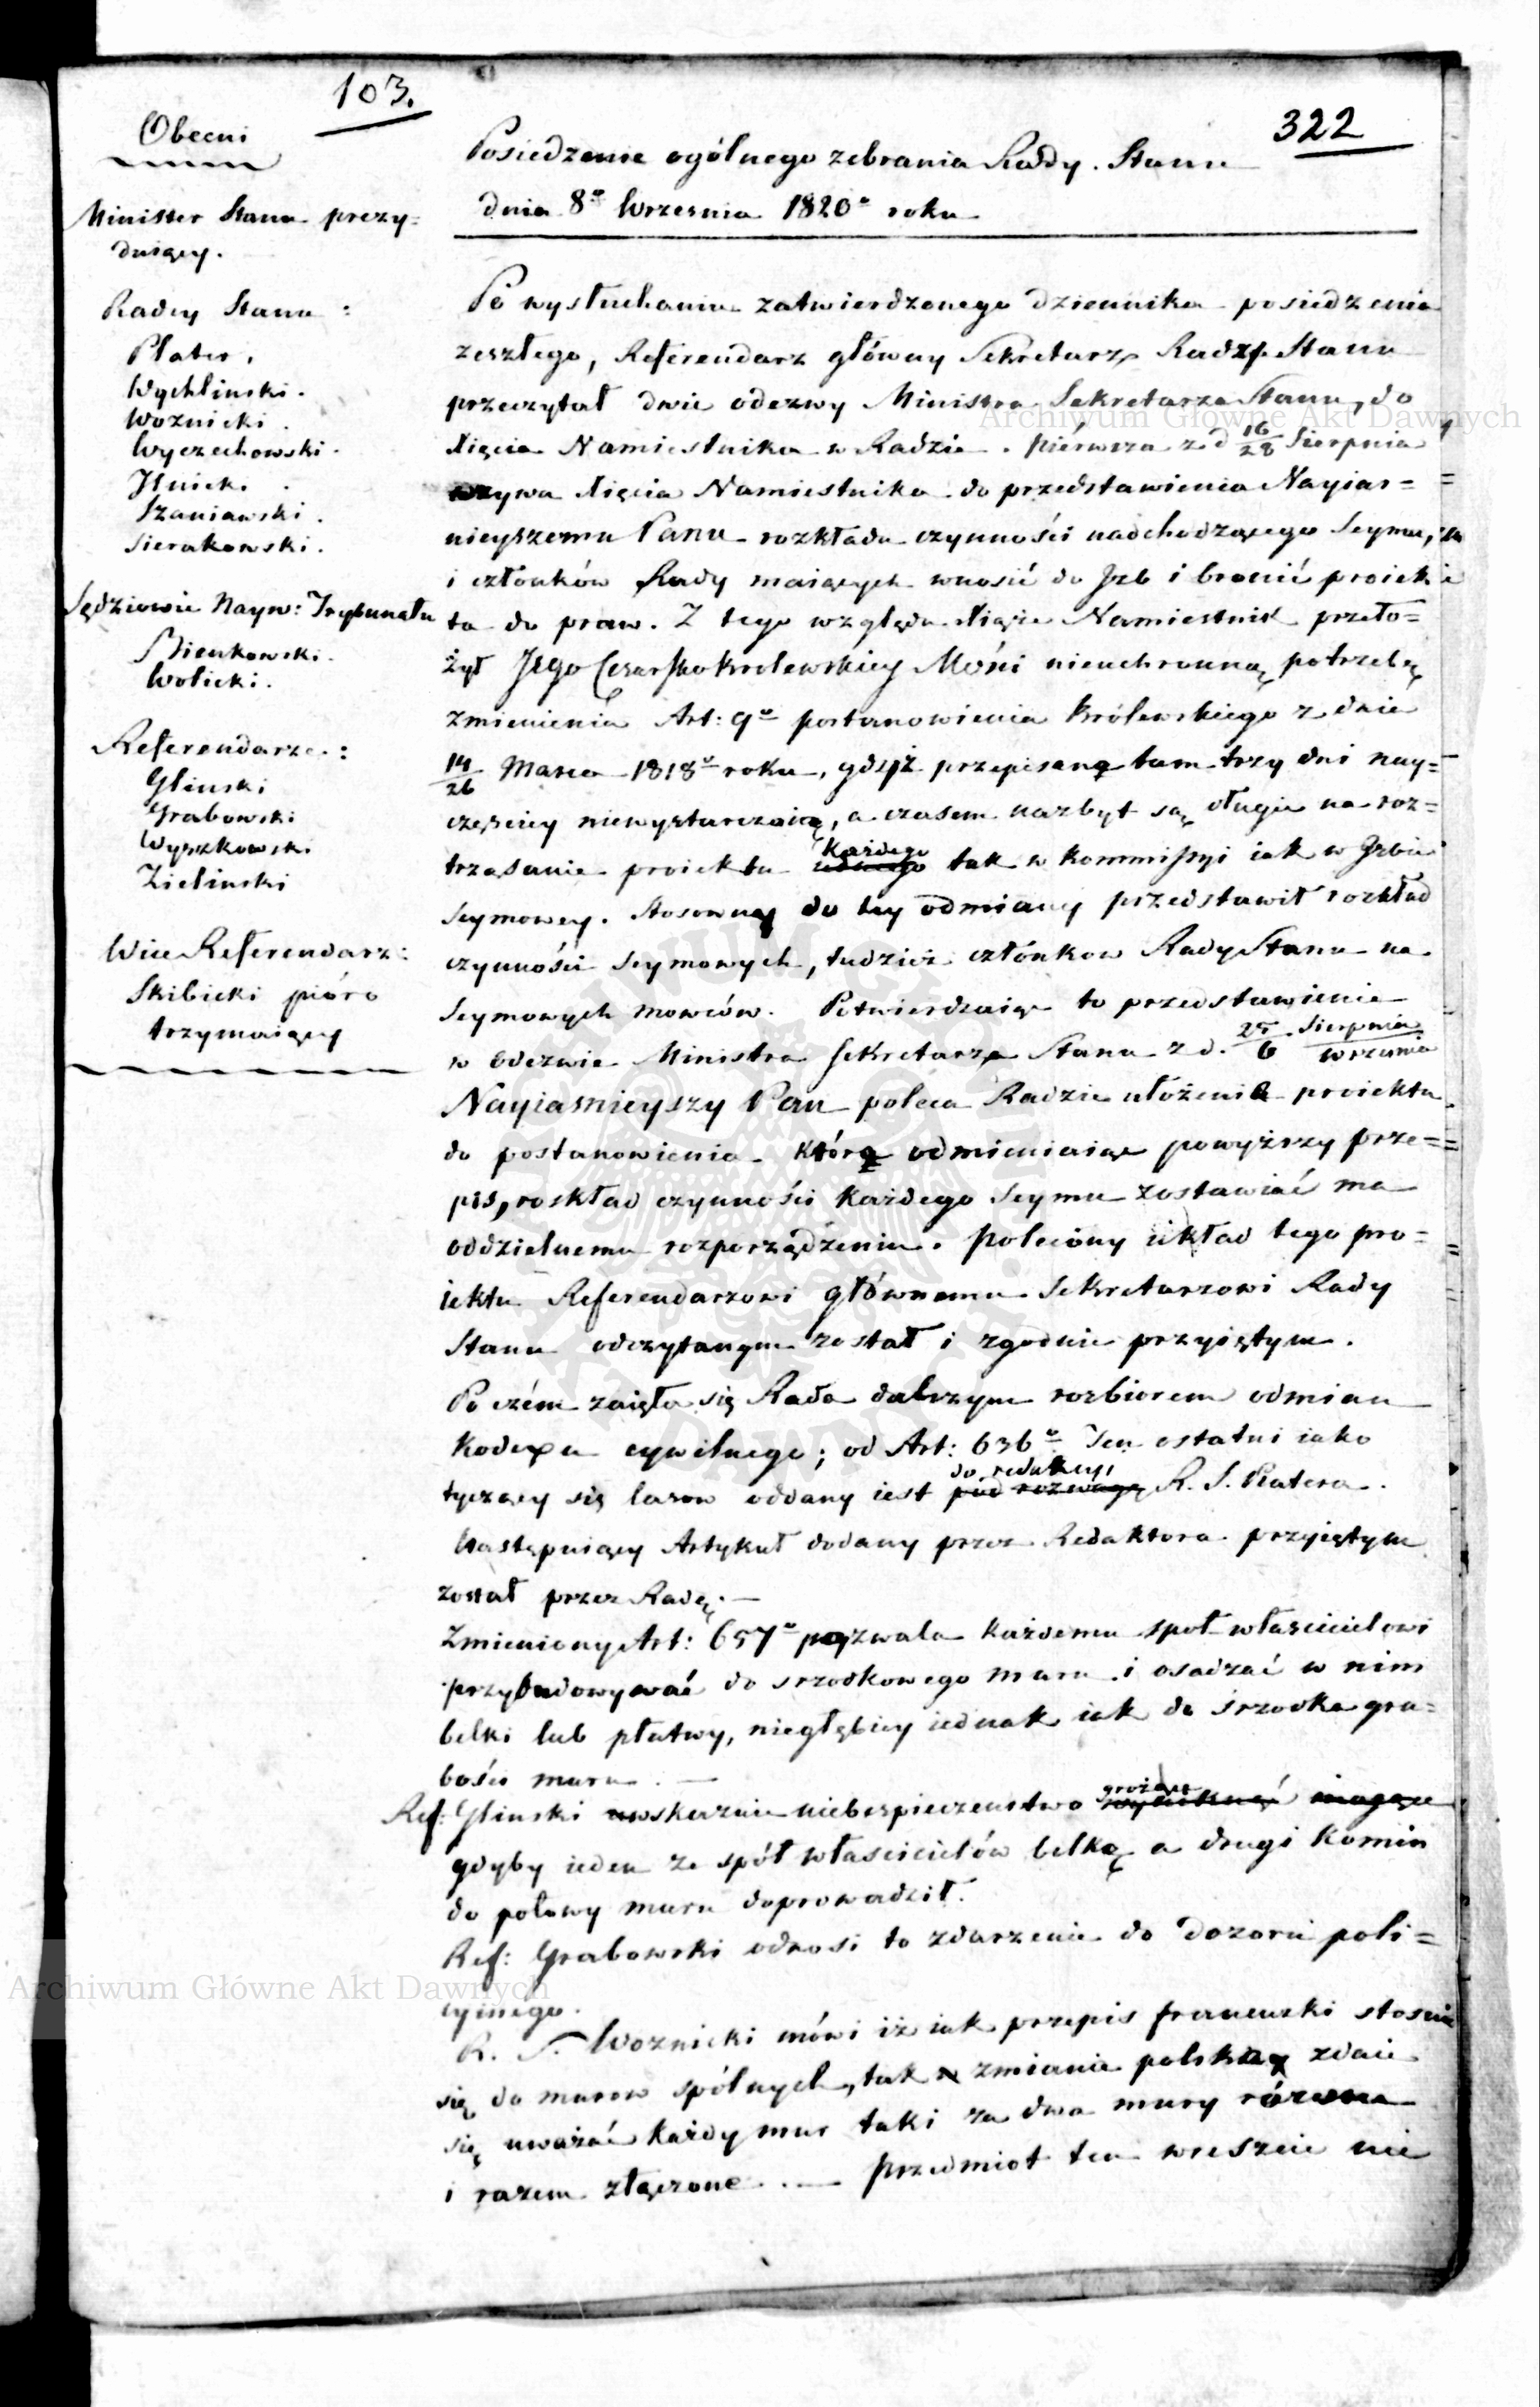 103.
322
Obecni
Minister Stanu prezy=
duiący.
Radcy Stanu :
Plater.
Wychliński.
Woznicki.
Wyczechowski.
Szaniawski.
Sierakowski.
Sędziowie Nayw: Trybunału
Bieńkowski.
Wolicki.
Referendarze:
Gliński
Grabowski
Wyszkowski
Zieliński
Wice Referendarz:
Skibicki pióro
trzymaiący
Posiedzenie ogólnego zebrania Rady Stanu
dnia 8º Września 1820º roku
Po wysłuchaniu zatwierdzonego dziennika posiedzenia
zeszłego, Referendarz główny Sekretarz Rady Stanu
przeczytał dwie odezwy Ministra Sekretarza Stanu, do
Xięcia Namiestnika w Radzie. Piérwsza z d 16/28 Sierpnia
wzywa Xięcia Namiestnika do przedstawienia Nayias=
nieyszemu Panu rozkładu czynności nadchodzącego Seymu,
i członków Rady maiących wnosić do Jzb i bronić proiek
ta do praw. Z tego względu Xiąże Namiestnik przeło=
żył Jego Cesarsko Krolewskiey Mości nieuchronną potrzebę
zmienienia Art: 9º postanowienia Królewskiego z dnia
14/26 Marca 1818º roku, gdyż przepisane tam trzy dni nay=
częściey niewystarczaią, a czasem nazbyt są długie na roz=
trząsanie proiektu każdego tak w Kommissyi iak w Jzbie
Seymowey. Stosownie do tey odmiany przedstawił rozkład
czynności Seymowych, tudzież członkow Rady Stanu na
Seymowych mowców. Potwierdzaiąc to przedstawienie
w odezwie Ministra Sekretarza Stanu z d. 25 Sierpnia/6 Września
Nayiaśnieyszy Pan poleca Radzie ułożenie proiektu
do postanowienia które odmieniaiąc powyższy prze=
pis, roskład czynności każdego Seymu zostawiać ma
oddzielnemu rozporządzeniu. Polecony układ tego pro=
iektu Referendarzowi głównemu Sekretarzowi Rady
Stanu odczytanym został i zgodnie przyiętym.
Po czém zaięła się Rada dalszym rozbiorem odmian
Kodexu cywilnego; od Art: 636º Ten ostatni iako
tyczący się lasow oddany iest do redakcyi pod rozwagę R. S. Platera.
Następuiący Artykuł dodany przez Redaktora przyiętym
został przez Radę. —
Zmieniony Art: 657º pozwala każdemu społ właścicielowi
przybudowywać do srzodkowego muru i osadzać w nim
belki lub płatwy, niegłębiey iednak iak do srzodka gru=
bości muru. —
Ref: Gliński wskazuie niebezpieczeństwo grożące
gdyby ieden ze spół właścicielów belkę a drugi komin
do połowy muru doprowadził.
Ref: Grabowski odnosi to zdarzenie do Dozoru poli=
cyinego.
R. S. Woznicki mówi iż iak przepis francuzki stosuie
się do murow spólnych, tak w zmianie polskiey zdaie
się uważać każdy mur taki za dwa mury równe
i razem złączone. — Przedmiot ten wreszcie nie
Archiwum Główne Akt Dawnych
Archiwum Główne Akt Dawnych